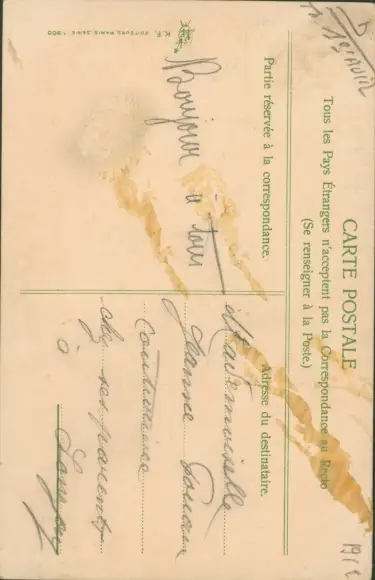 CARTE POSTALE
Tous les Pays Étrangers n'acceptent pas la Correspondance au Recto
(Se renseigner à la Poste.)
Partie réservée à la correspondance.
Adresse du destinataire.
Bonjour à Tous
Mademoiselle
Jeanne
Couturière
chez ses parents
à
K. F. EDITEURS, PARIS, SERIE 1900